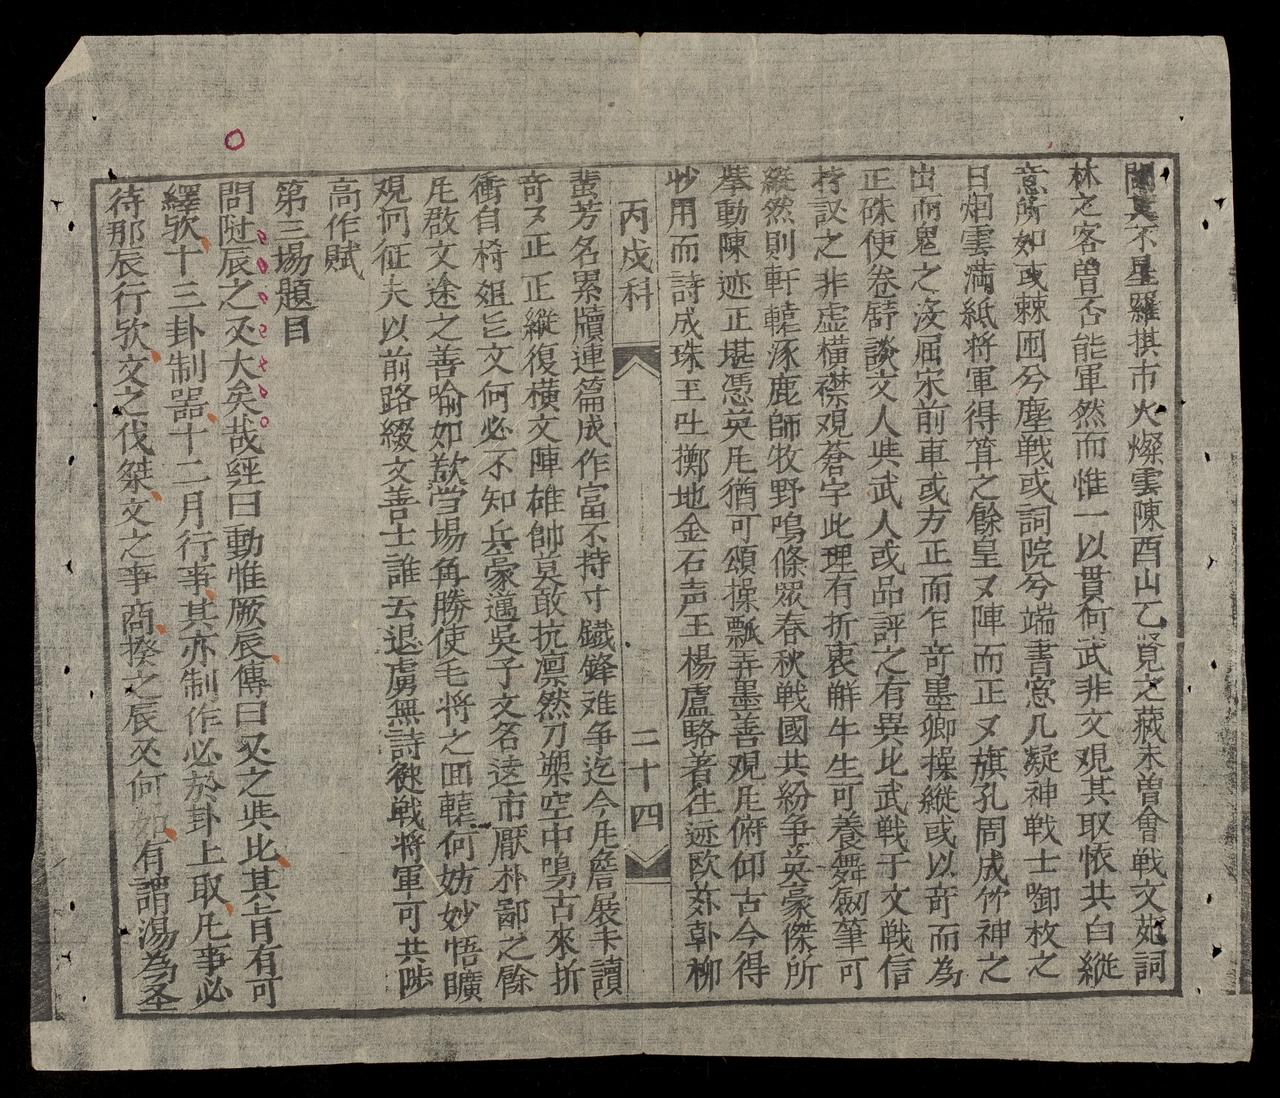 不星羅棋市火燦雲陳酉山乙覧之藏未曽會戦文苑詞
林之客曽否能軍然而惟一以貫何武非文观其取恢共白縱
意所如或棘囲兮塵戦或詞院兮端書窓几凝神戦士啣枚之
日烟雲満紙将軍得筭之餘皇〻陣而正〻旗孔周成竹神之
出而鬼之没屈宋前車或方正而乍奇墨卿操縱或以奇而為
正硃使卷舒談文人与武人或品評之有異比武戦于文戦信
持議之非虚横襟观蒼宇此理有折衷觧牛生可養舞劔筆可
縱然則軒轅涿鹿師牧野鳴條眾春秋戦國共紛争英豪傑所
挙動陳迹正堪憑英凡猶可頌操瓢弄墨善观凡俯仰古今得
妙用而詩成珠玉吐擲地金石声王楊盧駱著往迹欧苏韩柳
丙戍科
二十四
蜚芳名累牘連篇成作富不持寸鐡鋒难争迄今凡詹展卡讀
奇〻正正縱復横文陣雄帥莫敢抗凛然刀槊空中鳴古來折
衝自椅俎㠯文何必不知兵豪邁吳子文名逵市厭朴鄙之餘
凡啟文途之善喻如歃当場角勝使毛将之囬轅何妨妙悟曠
观何征夫以前路綴文善士誰云退虏無詩従戦将軍可共陟
高作賦
第三場題目
問𨑗辰之义大矣哉経曰動惟厥辰傳曰义之与比其㫖有可
繹欤十三卦制噐十二月行事其亦制作必於卦上取凡事必
待那辰行欤文之伐桀文之事商揆之辰义何如有謂湯為圣